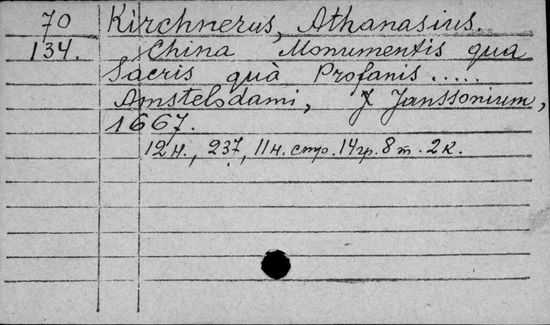 70 Kirchnerus, Athanasius.
134. China Monumentis qua
Sacris quà Profanis .....
Amstelodami, J. Janssonium,
1667.
12 н., 237, 11 н. стр. 14 гр. 8 т. 2 к.